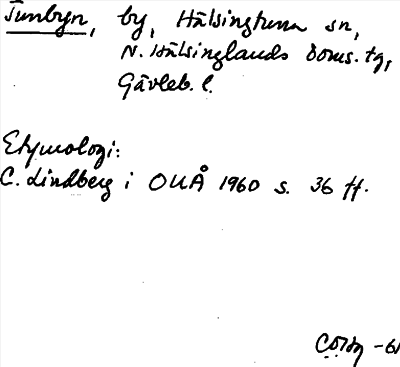 Tunbyn, by, Hälsingtuna sn,
N. Hälsinglands doms. tg,
Gävleb. l.
Etymologi:
C. Lindberg i OUÅ 1960 s. 36 ff.
-61